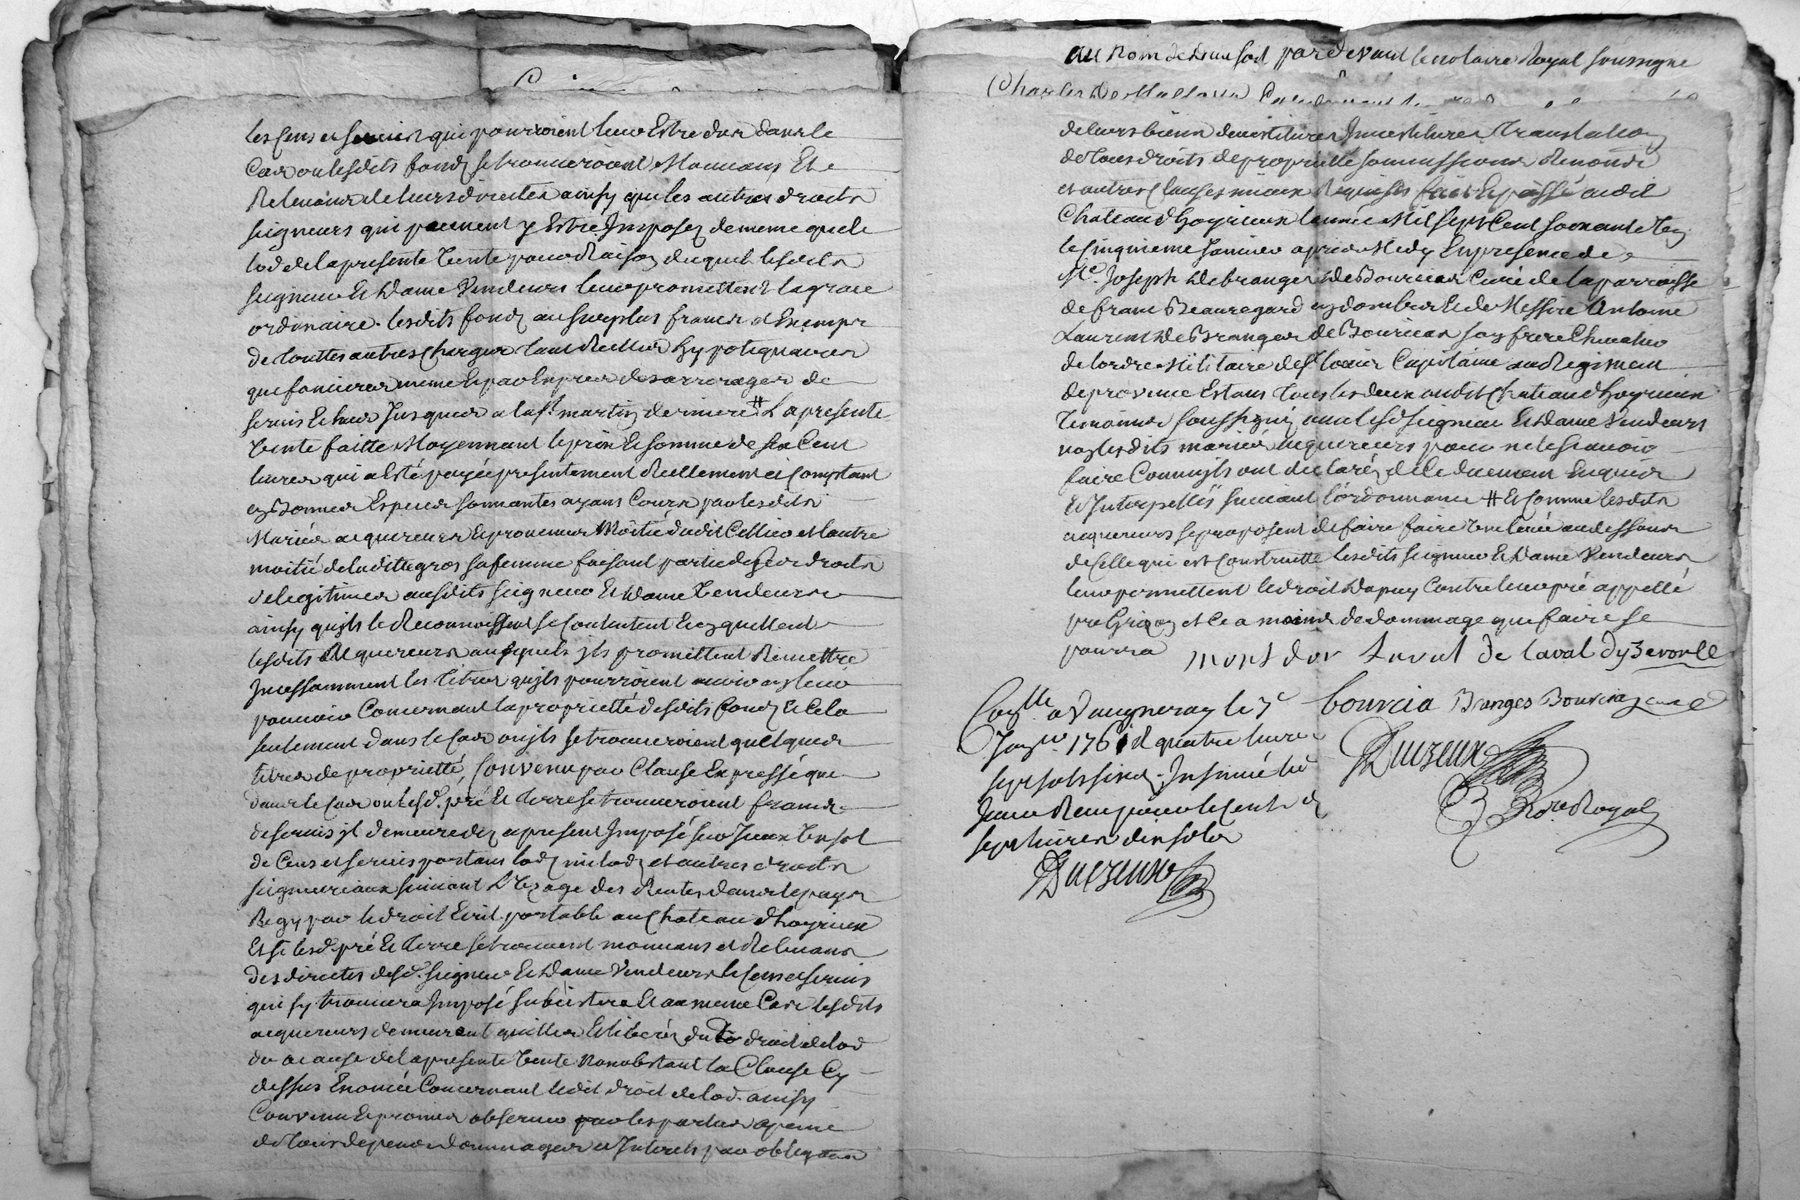 les Cens et servis qui pourroient leur Estre dus dans le
Cas ou lesdits fonds se trouveroient Mouvans Et
Relevans de leurs directes ainsy que les autres droits
seigneurs qui peuvent y Estre Imposez de meme que le
lod de la presente Vente pour Raison duquel lesdits
seigneur Et Dame Vendeurs leur promettent la grace
ordinaire. lesdits fonds au surplus francs et Exempts
de touttes autres Charges tant Reelles hypotequaires
que foncieres meme Et par Exprès des arrerages de
servis Echus Jusques a la st. martin derniere # La presente
Vente faitte Moyennant le prix Et somme de six Cent
livres qui a Esté payée presentement Reellement et Comptant
en Bonnes Especes sonnantes ayans Cours par lesdits
Mariés acquereurs Et provenues Moitié dudit Cellier et l'autre
moitié de laditte gros sa femme faisant partie de ses droits
de legitimes ausdits seigneur Et Dame Vendeurs
ainsy qu'jls le Reconnoissent se Contentent Et quittent
lesdits Acquereurs ausquels jls promettent Remettre
Jncessamment les titres qu'jls pourroient avoir en leur
pouvoir Concernant la proprietté desdits fonds Et Cela
seulement dans le Cas ou jls se trouveroient quelques
titres de proprietté, Convenu par Clause Expresse que
dans le Cas ou lesd. pré Et terre se trouveroient francs
de servis jl demeure dez a present Imposé sur Jceux Un sol
de Cens et servis portans lods mi lods et autres droits
seigneuriaux suivant L'Uzage des Rentes dans le pays
Regy par le droit Ecrit portable au Chateau d'hoyrieux
Et si lesd. pré Et terre se trouvent mouvans et Relevans
des directes desd. seigneur Et Dame Vendeurs le Cens et servis
qui s'y trouvera Imposé subsistera Et au meme Cas lesdits
acquereurs demeurent quittes Et liberés du droit de lod
du a Cause de la presente Vente Nonobstant la Clause Cy
dessus Enoncée Concernant ledit droit de lod. ainsy
Convenu Et promis observer par les parties a peine
de tous depens dommages et Interets par obligation
au nom de Dieu soit par devant le notaire Royal soussigné
Charles De Mallavin
de leurs biens devestitures Jnvestitures translation
de tous droits de proprietté soumissions Renonce
et autres Clauses mieux Requises fait Et passé audit
Chateau d'hoyrieux l'année Mil sept Cent soixante Un
le Cinquieme Janvier après Midy En presence de
Me. Joseph De branges De Bourcia Curé de la parroisse
de franc Beauregard en dombes Et de Messire Antoine
Laurent De Branges de Bourcia son frere Chevalier
de l'ordre Militaire de st. Louis Capitaine au Regiment
de provence Estans tous les deux audit Chateau d'hoyrieux
temoins soussignés avec lesd. seigneur Et Dame Vendeurs
non lesdits mariés acquereurs pour ne le sçavoir
faire Comm'jls ont declaré de Ce duement Enquis
Et Interpellés suivant l'ordonnance # Et Comme lesdits
acquereurs se proposent de faire faire Une levée au dessous
de Celle qui est Construitte lesdits seigneur Et Dame Vendeurs
leur permettent le droit D'apuy Contre leur pré appellé
pré Grison et Ce a moins de dommage que faire se
pourra
mont dor de Laval
bourcia Branges Bourcia
Conlle. a Vaugneray le 7e
Janvr. 1761 R quatre livres
sept sols six d. Jnsinué led
Jour Reçu pour le Cent d
sept livres dix sols
Duczeux
Duczeux
Nore Royal